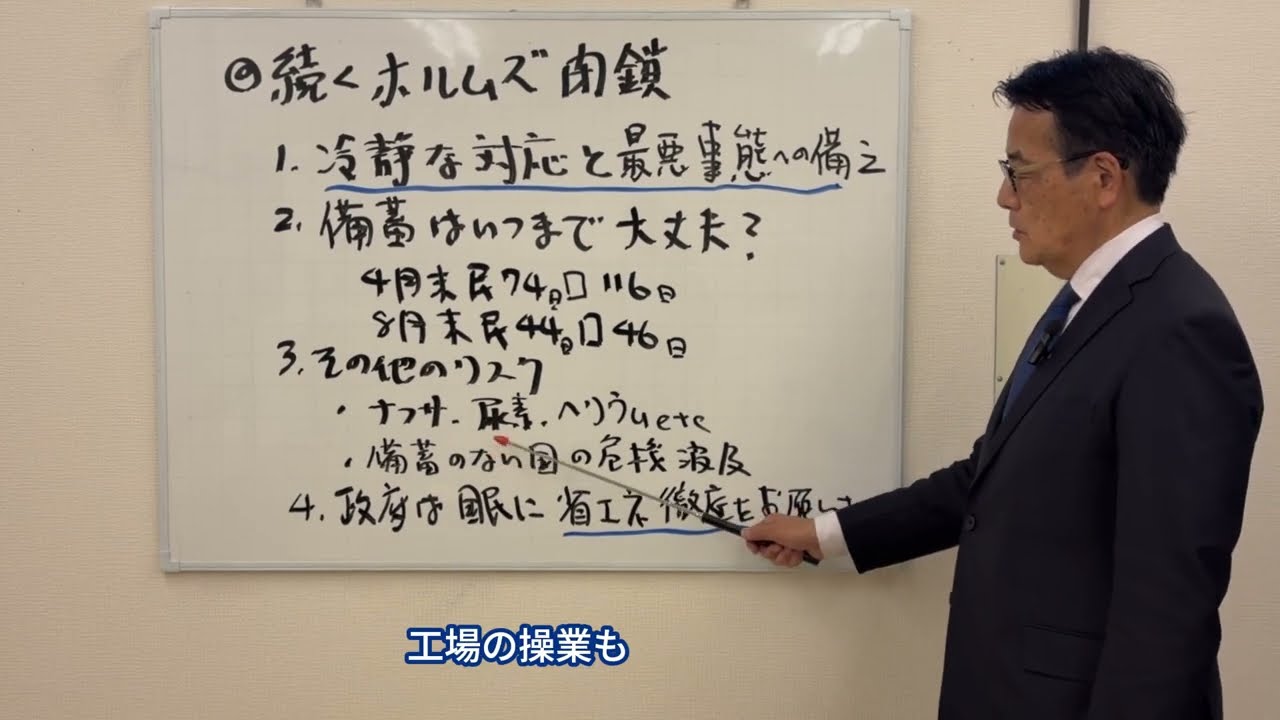 ◎続くホルムズ閉鎖
1. 冷静な対応と最悪事態への備え
2. 備蓄はいつまで大丈夫?
4月末民74日口116日
8月末民44日口46日
3. その他のリスク
・ナフサ.尿素.ヘリウムetc
・備蓄のない国の危機波及
4. 政府は国民に省エネ徹底をお願い
工場の操業も